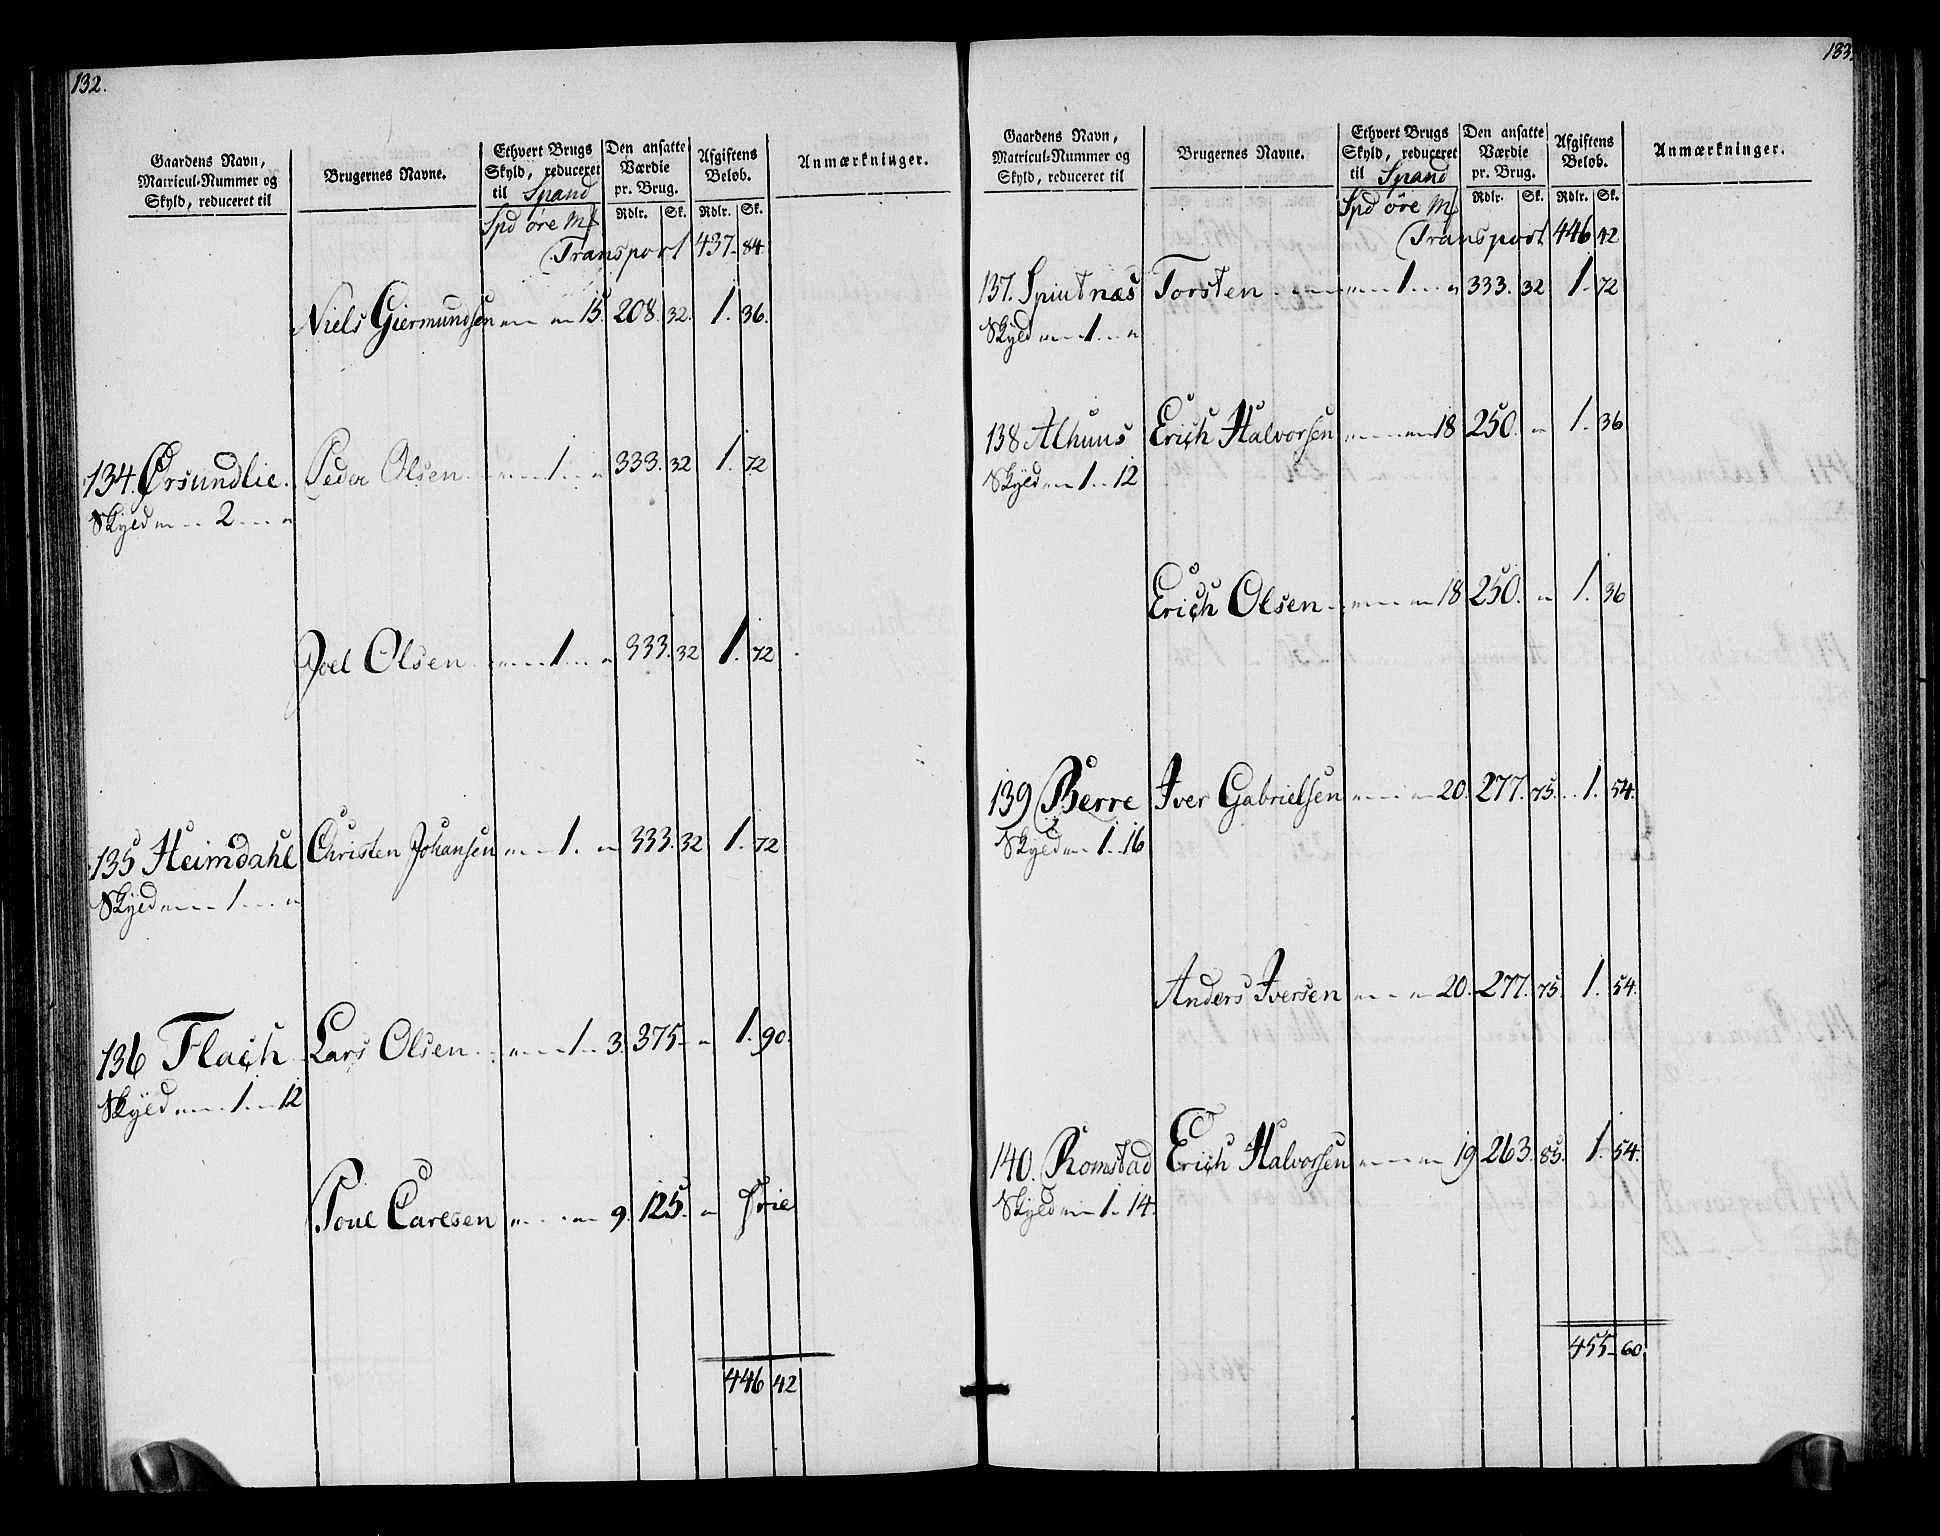 132.
Gaardens Navn, Matricul-Nummer og Skyld, reduceret til
Brugernes Navne.
Ethvert Brugs Skyld, reduceret til Spand
Den ansatte Værdie pr. Brug.
Afgiftens Beløb.
Anmærkninger.
Spd øre Mk Rdlr. Sk. Rdlr. Sk.
Transport 437. 84.
Niels Giermundsen 15. 208. 32. 1. 36.
134. Ørsundlie. Peder Olsen 1 333. 32 1. 72
Skyld 2
Joel Olsen 1 333. 32 1. 72
135 Heimdahl Christen Johansen 1. 333. 32 1. 72
Skyld 1
136 Flach Lars Olsen 1 3. 375 1. 90.
Skyld 1 12
Poul Carlsen 9. 125. frie
446 42
133.
Gaardens Navn, Matricul-Nummer og Skyld, reduceret til
Brugernes Navne.
Ethvert Brugs Skyld, reduceret til Spand
Den ansatte Værdie pr. Brug.
Afgiftens Beløb.
Anmærkninger.
Spd øre Mk Rdlr. Sk. Rdlr. Sk.
Transport 446 42
137. Spiutnæs Torsten 1 333. 32 1. 72
Skyld 1
138 Alhuus Erich Halvorsen 18 250. 1. 36
Skyld 1 12
Erich Olsen 18 250. 1. 36
139 Berre Iver Gabrielsen 20. 277. 75. 1. 54.
Skyld 1 16
Anders Iversen 20. 277. 75. 1. 54.
140. Romstad Erich Halvorsen 19 263. 85. 1. 54.
Skyld 1 14.
455 60.